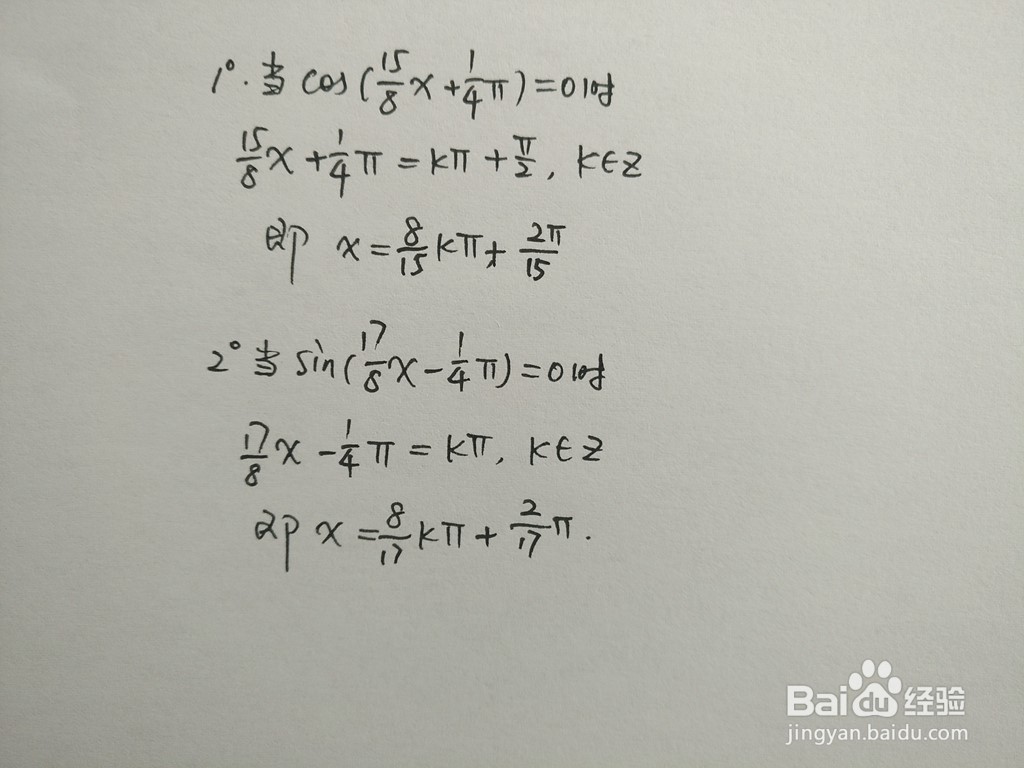 1°. 当 cos(15/8 x + 1/4 π) = 0 时
15/8 x + 1/4 π = kπ + π/2, k∈Z
即 x = 8/15 kπ + 2π/15
2° 当 sin(17/8 x - 1/4 π) = 0 时
17/8 x - 1/4 π = kπ, k∈Z
即 x = 8/17 kπ + 2/17 π.
Baidu经验
jingyan.baidu.com